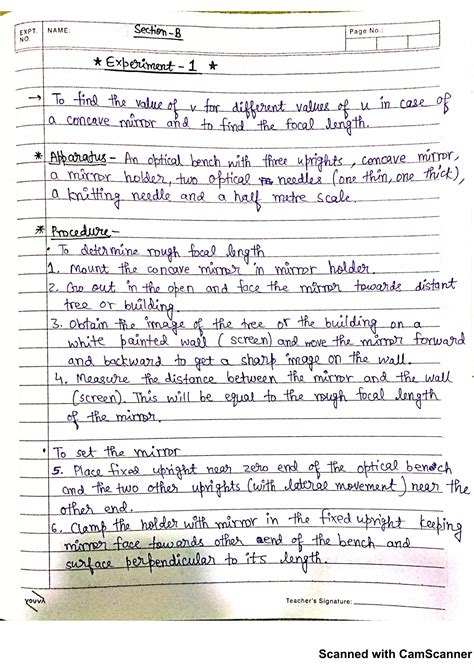 EXPT. NO.
NAME:
Section-B
Page No.:
* Experiment - 1 *
→ To find the value of v for different values of u in case of
a concave mirror and to find the focal length.
* Apparatus - An optical bench with three uprights, concave mirror,
a mirror holder, two optical needles (one thin, one thick),
a knitting needle and a half metre scale.
* Procedure -
• To determine rough focal length
1. Mount the concave mirror in mirror holder.
2. Go out in the open and face the mirror towards distant
tree or building.
3. Obtain the image of the tree or the building on a
white painted wall (screen) and move the mirror forward
and backward to get a sharp image on the wall.
4. Measure the distance between the mirror and the wall
(screen). This will be equal to the rough focal length
of the mirror.
• To set the mirror
5. Place fixed upright near zero end of the optical bench
and the two other uprights (with lateral movement) near the
other end.
6. Clamp the holder with mirror in the fixed upright keeping
mirror face towards other end of the bench and
surface perpendicular to its length.
youva
Teacher's Signature:
Scanned with CamScanner